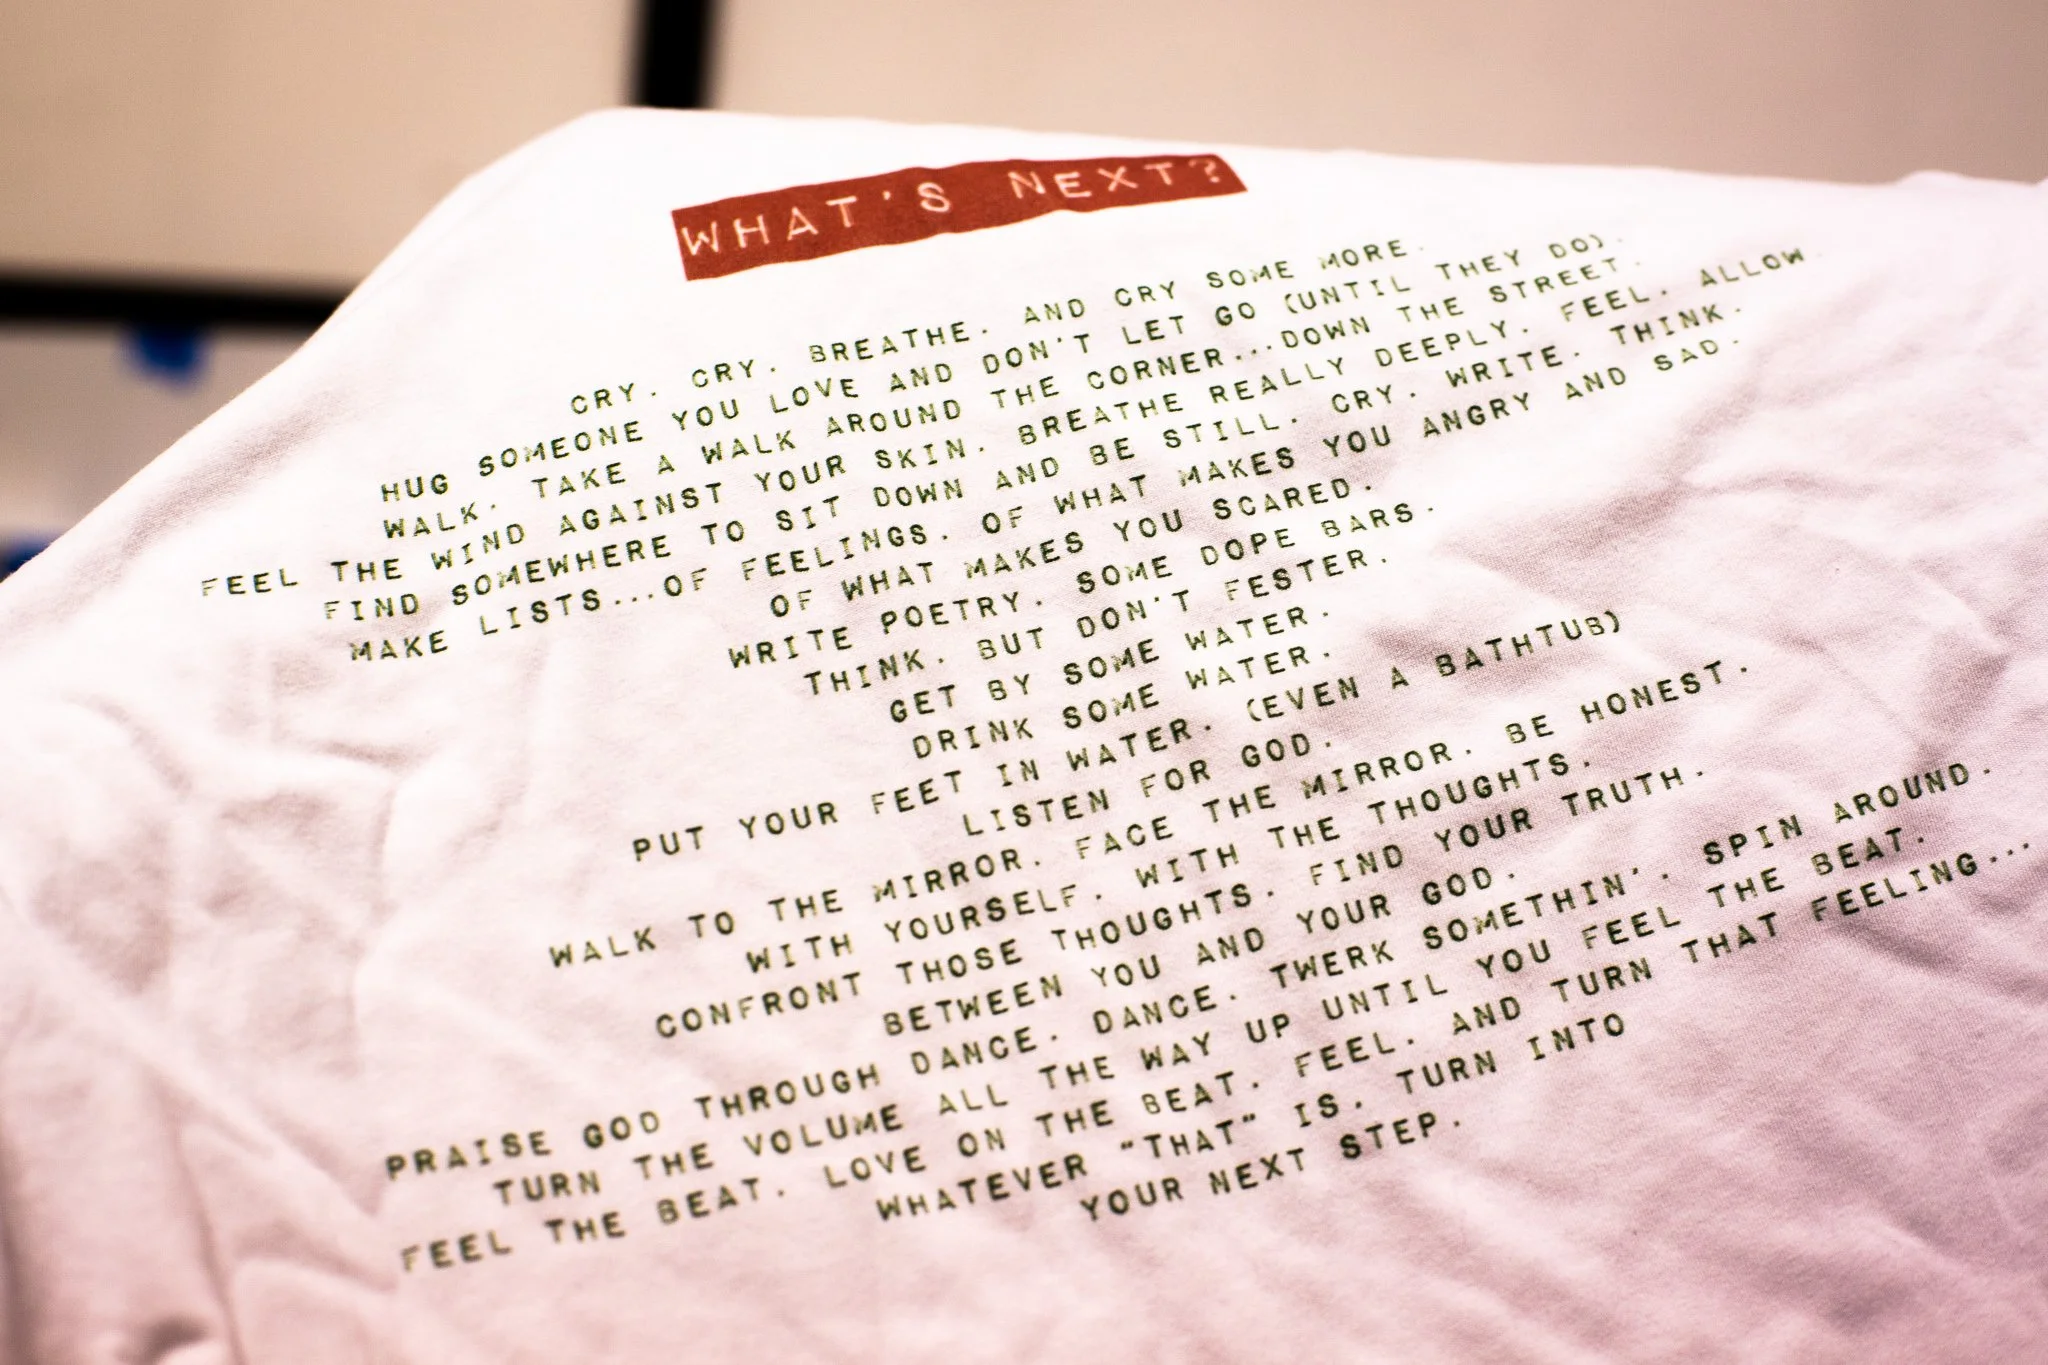 WHAT'S NEXT?
CRY. CRY. BREATHE. AND CRY SOME MORE.
HUG SOMEONE YOU LOVE AND DON'T LET GO (UNTIL THEY DO).
WALK. TAKE A WALK AROUND THE CORNER...DOWN THE STREET.
FEEL THE WIND AGAINST YOUR SKIN. BREATHE REALLY DEEPLY. FEEL. ALLOW.
FIND SOMEWHERE TO SIT DOWN AND BE STILL. CRY. WRITE. THINK.
MAKE LISTS...OF FEELINGS. OF WHAT MAKES YOU ANGRY AND SAD.
OF WHAT MAKES YOU SCARED.
WRITE POETRY. SOME DOPE BARS.
THINK. BUT DON'T FESTER.
GET BY SOME WATER.
DRINK SOME WATER.
PUT YOUR FEET IN WATER. (EVEN A BATHTUB)
LISTEN FOR GOD.
WALK TO THE MIRROR. FACE THE MIRROR. BE HONEST.
WITH YOURSELF. WITH THE THOUGHTS.
CONFRONT THOSE THOUGHTS. FIND YOUR TRUTH.
BETWEEN YOU AND YOUR GOD.
PRAISE GOD THROUGH DANCE. DANCE. TWERK SOMETHIN'. SPIN AROUND.
TURN THE VOLUME ALL THE WAY UP UNTIL YOU FEEL THE BEAT.
FEEL THE BEAT. LOVE ON THE BEAT. FEEL. AND TURN THAT FEELING...
WHATEVER "THAT" IS. TURN INTO
YOUR NEXT STEP.